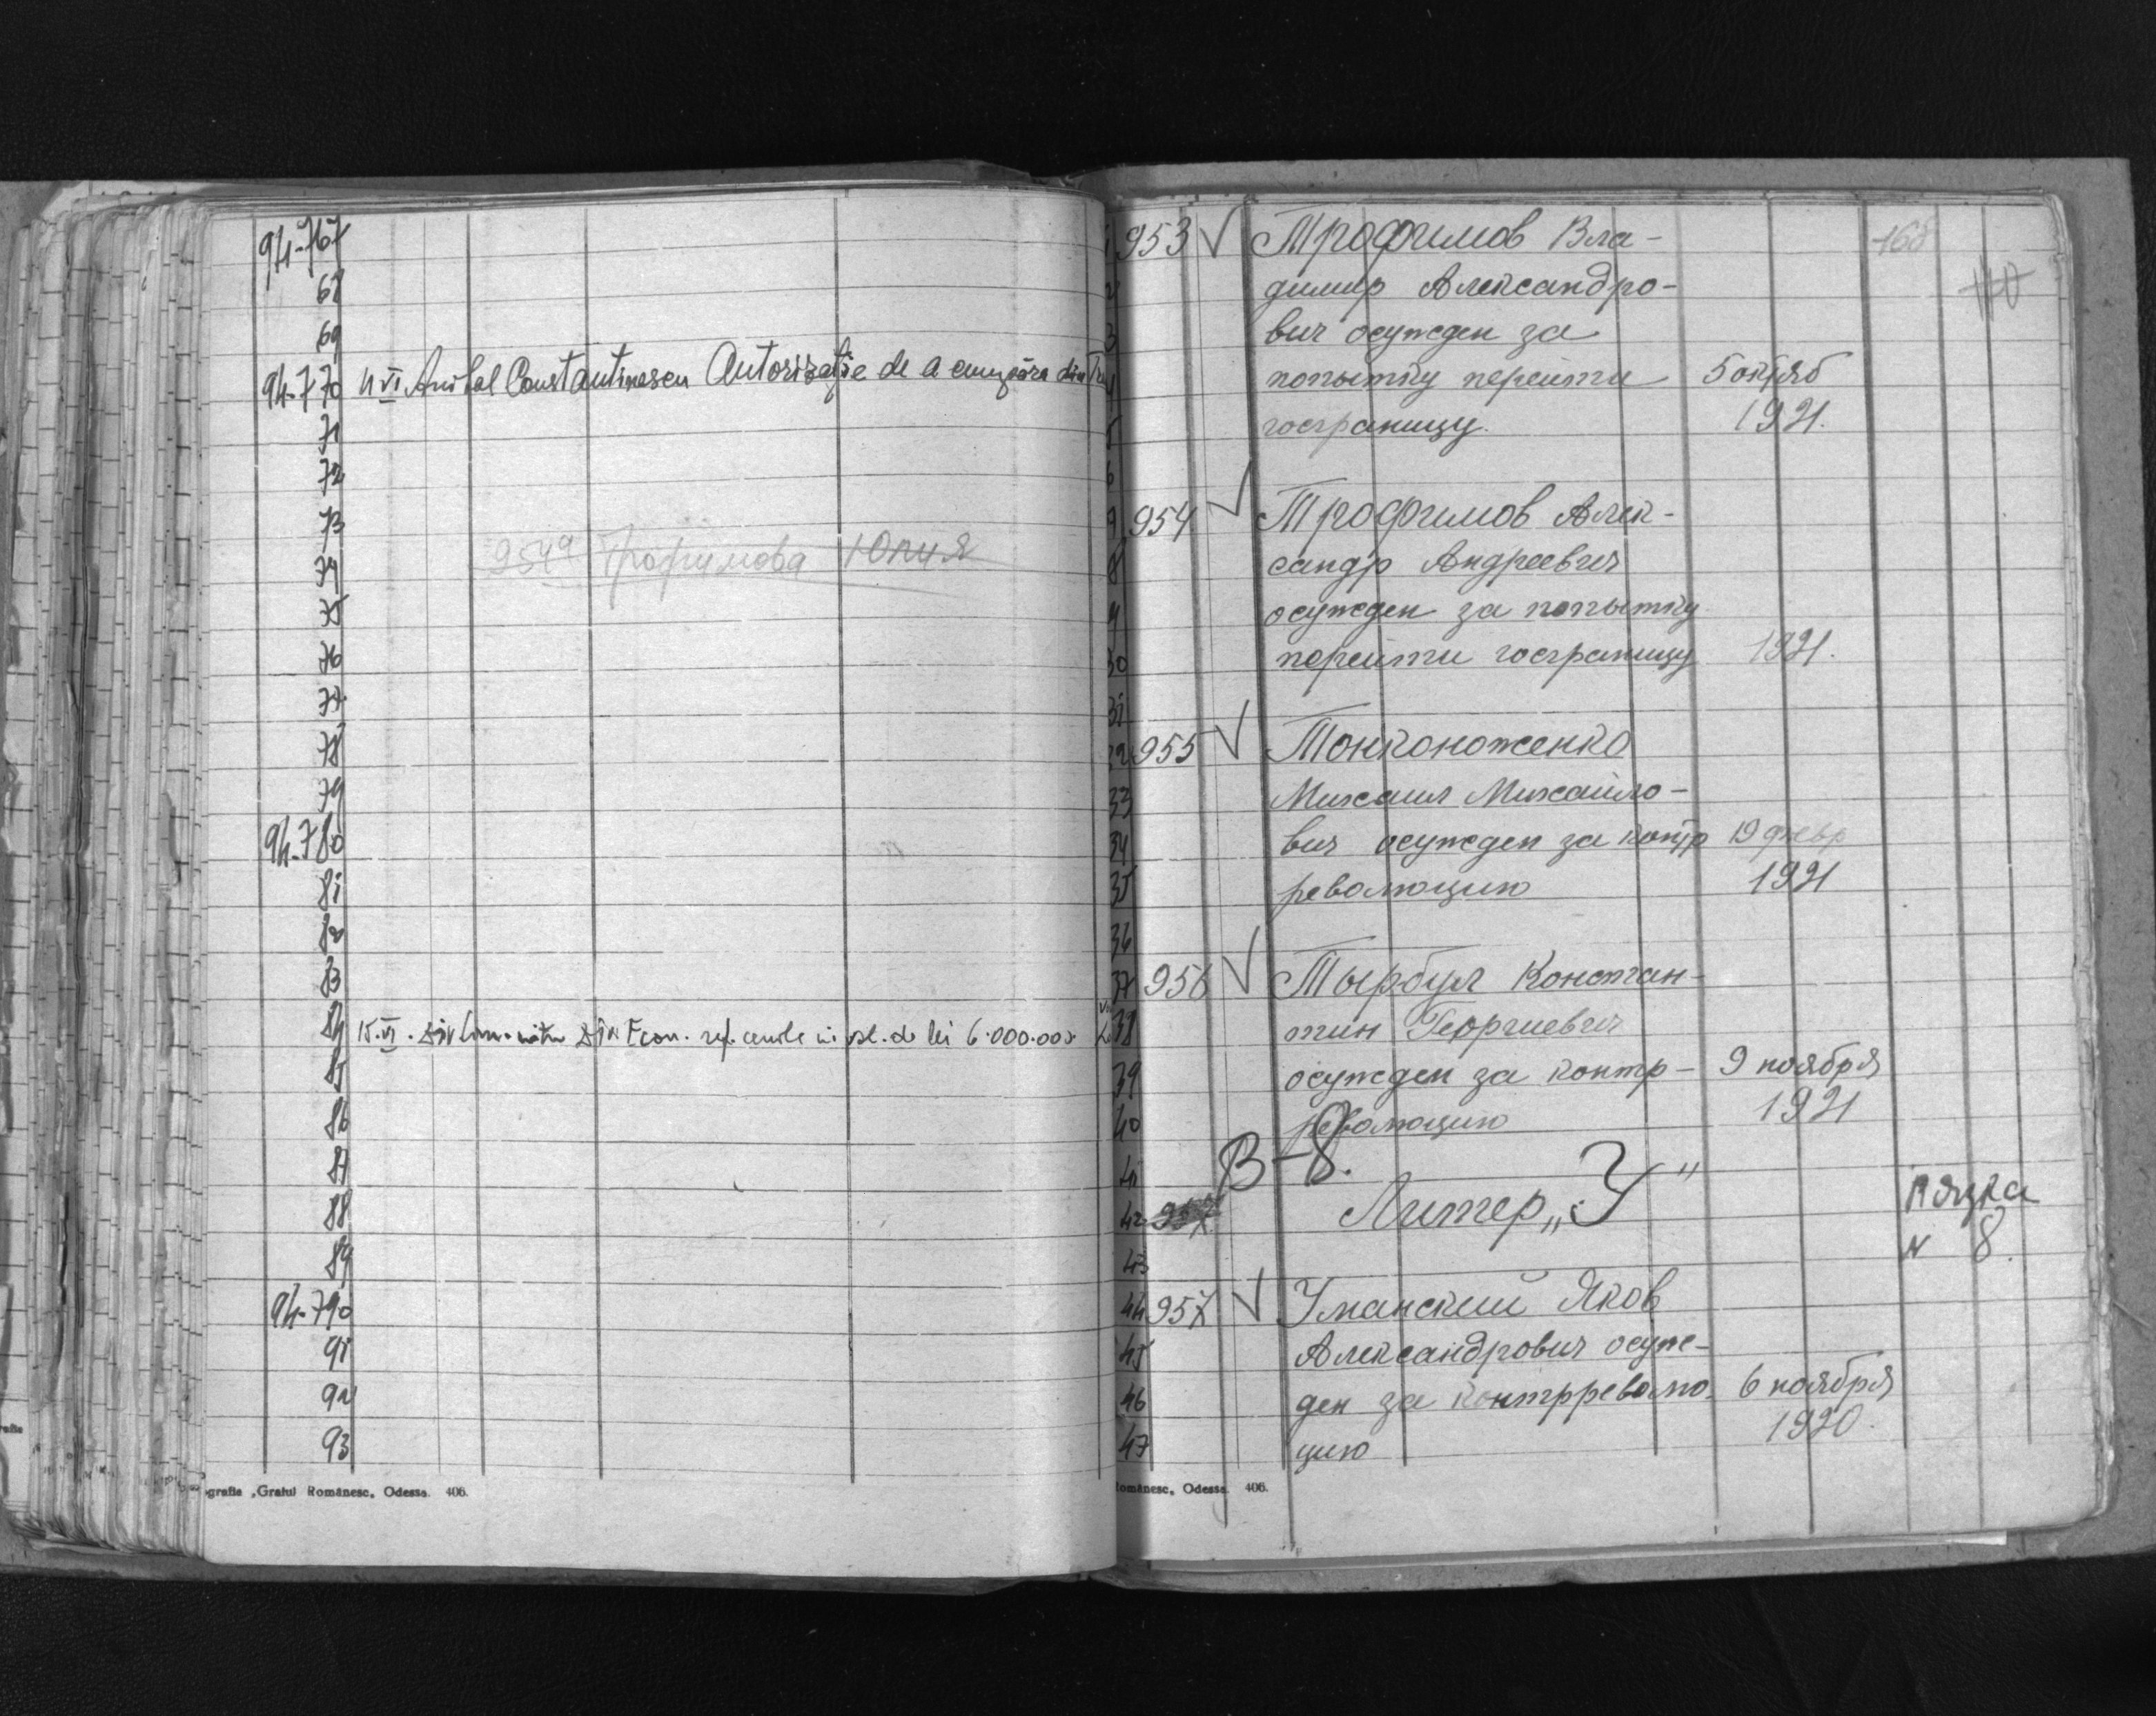 94.767
68
69
94.770 11 VI Anibal Constantinescu Autorizaţie de a cumpăra din
71
72
73
954а Трофимова Юлия
74
75
76
77
78
79
94.780
81
82
83
84 15.VI.
Econ. lei 6.000.000
85
86
87
88
89
94.790
91
92
93
ografia „Graiul Românesc„ Odessa. 406.
168
110
953 Трофимов Вла-
димир Александро-
вич осужден за
попытку перейти 5 октяб
госграницу. 1921.
954 Трофимов Алек-
сандр Андреевич
осужден за попытку
перейти госграницу 1921.
955 Тонконоженко
Михаил Михайло-
вич осужден за контр 19 февр
революцию 1921
956 Тырбул Констан-
тин Георгиевич
осужден за контр- 9 ноября
революцию 1921
В-8.
957 Литер „У"
Вязка
N 8.
957 Уманский Яков
Александрович осуж-
ден за контрреволю- 6 ноября
цию 1920.
Românesc„ Odessa. 406.